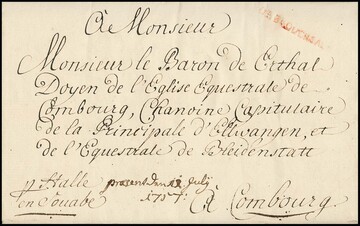 à Monsieur
Monsieur le Baron de Erthal
Doyen de l'Eglise Equestrale de
Combourg, Chanoine Capitulaire
de la Principale d'Ellwangen, et
de l'Equestrale de Bleidenstatt
p Halle
en Souabe
præsent den 12 July
1757.
à Combourg.